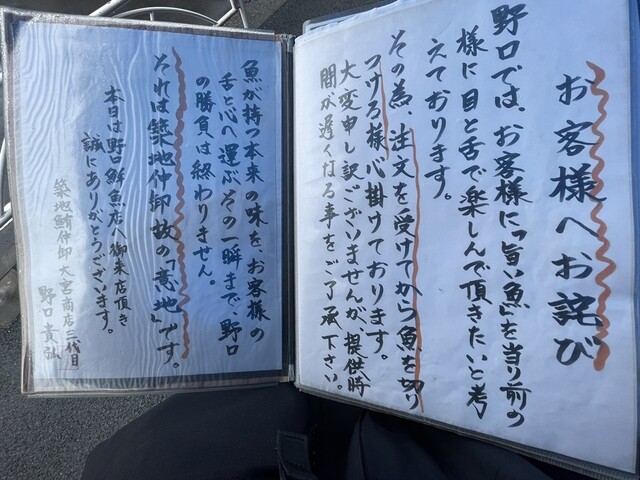 お客様へお詫び
野口では、お客様に「旨い魚」を当り前の
様に目と舌で楽しんで頂きたいと考
えております。
その為、注文を受けてから魚を切り
つける様心掛けております。
大変申し訳ございませんが、提供時
間が遅くなる事をご了承下さい。
魚が持つ本来の味を、お客様の
舌と心へ運ぶその一瞬まで、野口
の勝負は終わりません。
それは築地仲卸故の「意地」です。
本日は野口鮮魚店へ御来店頂き
誠にありがとうございます。
築地鮪仲卸 大宮商店三代目
野口貴弘